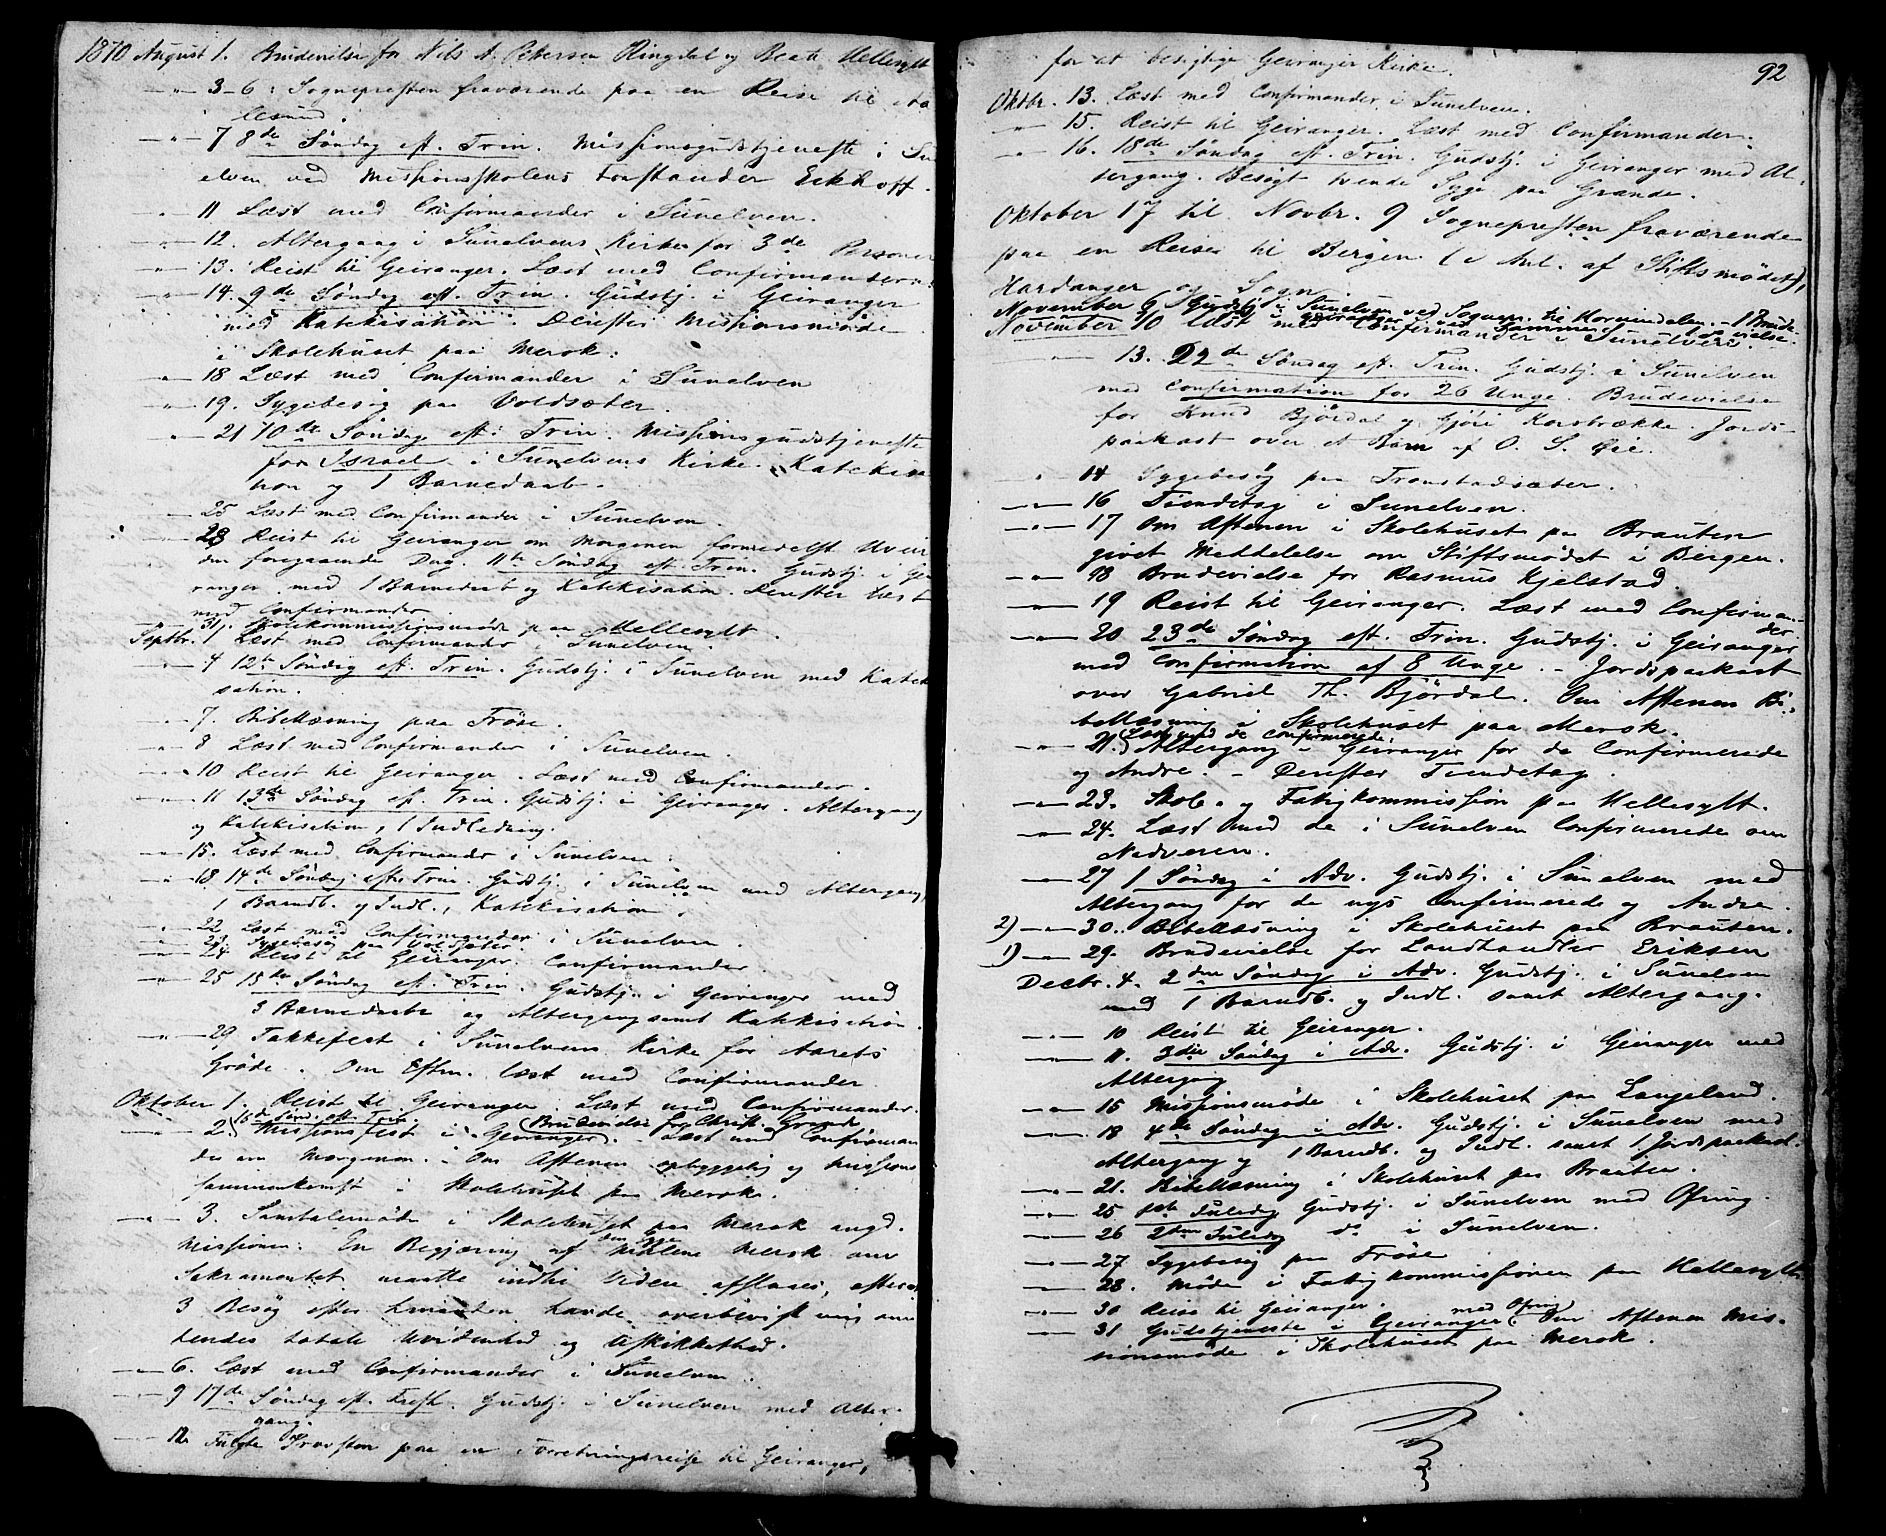 1870 August 1. Brudevielse for Nils A. Petersen Ringdal og Beate Hellesylt
—"— 3-6: Sognepresten fraværende paa en Reise til Aa
lesund.
—"— 7 8de Søndag eft. Trin. Missionsgudstjeneste i Sun
elven ved Missionsskolens Forstander Eckhoff.
—"— 11 Læst med Confirmander i Sunelven.
—"— 12. Altergang i Sunelvens Kirke for 3de Personer
—"— 13. Reist til Geiranger. Læst med Confirmanderne
—"— 14. 9de Søndag eft. Trin. Gudstj. i Geiranger
med Katekisation. Derefter Missionsmøde
i Skolehuset paa Merok.
—"— 18 Læst med Confirmander i Sunelven
—"— 19. Sygebesøg paa Voldsæter.
—"— 21 10de Søndag eft. Trin. Missionsgudstjeneste
for Israel i Sunelvens Kirke. Katekisa
tion og 1 Barnedaab.
—"— 25 Læst med Confirmander i Sunelven.
—"— 28 Reist til Geiranger om Morgenen formedelst Uveir
den foregaaende Dag. 11te Søndag eft. Trin. Gudstj. i Gei
ranger med 1 Barnedaab og Katekisation. Derefter læst
med Confirmander.
—"— 31. Skolekommissionsmøde paa Hellesylt.
Septbr. 1 Læst med Confirmander i Sunelven.
—"— 4 12te Søndag eft. Trin. Gudstj. i Sunelven med Kateki
sation.
—"— 7. Bibellæsning paa Frøse.
—"— 8 Læst med Confirmander i Sunelven.
—"— 10 Reist til Geiranger. Læst med Confirmander.
—"— 11 13de Søndag eft. Trin. Gudstj. i Geiranger. Altergang
og Katekisation, 1 Indledning.
—"— 15. Læst med Confirmander i Sunelven.
—"— 18 14de Søndag efter Trin. Gudstj. i Sunelven med Altergang,
1 Barndb. og Indl., Katekisation.
—"— 22 Læst med Confirmander i Sunelven.
—"— 23 Sygebesøg paa Voldsæter
—"— 24 Reist til Geiranger. Confirmander.
—"— 25 15de Søndag eft. Trin. Gudstj. i Geiranger med
3 Barnedaabe og Altergang samt Katekisation.
—"— 29 Takkefest i Sunelvens Kirke for Aarets
Grøde. Om Eftm. læst med Confirmander.
Oktober 1. Reist til Geiranger Læst med Confirmander.
16de Sønd. eft. Trin (Brudevielse for Christ. Grande
—"— 2) Missionsfest i Geiranger). – Læst med Confirman
der om Morgenen. – Om Aftenen opbyggelig og Missions
sammenkomst i Skolehuset paa Merok.
—"— 3. Samtalemøde i Skolehuset paa Merok angd.
Missionen. En Begjæring af den syge Malene Merok om
Sakramentet maatte indtil Viden afslaaes, efterat
3 Besøg efter hinanden havde overbevist mig om
hendes totale Uvidenhed og Uskikkethed.
—"— 6. Læst med Confirmander i Sunelven.
—"— 9 17de Søndag eft. Trefh. Gudstj. i Sunelven med Alter-
gang.
—"— 12. Fulgte Provsten paa en Forretningsreise til Geiranger,
92
for at besigtige Geiranger Kirke.
Oktbr. 13. Læst med Confirmander i Sunelven.
—"— 15. Reist til Geiranger. Læst med Confirmander.
—"— 16. 18de Søndag eft. Trin. Gudstj. i Geiranger med Al-
tergang. Besøgt tvende Syge paa Grande.
Oktober 17 til Novbr. 9 Sognepresten fraværende
paa en Reise til Bergen (i Anl. af Stiftsmødet),
Hardanger og Sogn.
November 6 Gudstj. i Sunelven ved Sognepr. til Hornindalen – 1 Brude
vielse.
November 10 Læst med Confirmander i Sunelven.
—"— 13. 22de Søndag eft. Trin. Gudstj. i Sunelven
med Confirmation for 26 Unge. Brudevielse
for Knud Bjørdal og Gjøri Korsbrække. Jords-
paakast over et Barn af O. S. Øie.
—"— 14 Sygebesøg paa Tronstadsæter.
—"— 16 Tiendetag i Sunelven.
—"— 17 Om Aftenen i Skolehuset paa Brauten
givet Meddelelse om Stiftsmødet i Bergen.
—"— 18 Brudevielse for Rasmus Kjelstad.
—"— 19 Reist til Geiranger. Læst med Confirman-
der
—"— 20 23de Søndag eft. Trin. Gudstj. i Geiranger
med Confirmation af 8 Unge. – Jordspaakast
over Gabriel Th. Bjørdal. Om Aftenen Bi-
bellæsning i Skolehuset paa Merok.
(Læst med de Confirmerede
—"— 21.) Altergang i Geiranger for de Confirmerede
og Andre. – Derefter Tiendetag.
—"— 23. Skole- og Fattigkommission paa Hellesylt.
—"— 24. Læst med de i Sunelven Confirmerede om
Nadveren.
—"— 27 1 Søndag i Adv. Gudstj. i Sunelven med
Altergang for de nys Confirmerede og Andre.
2) —"— 30. Bibellæsning i Skolehuset paa Brauten.
1) —"— 29. Brudevielse for Landhandler Eriksen
Decbr. 4. 2den Søndag i Adv. Gudstj. i Sunelven
med 1 Barndb. og Indl. samt Altergang.
—"— 10 Reist til Geiranger.
—"— 11. 3die Søndag i Adv. Gudstj. i Geiranger med
Altergang
—"— 15 Missionsmøde i Skolehuset paa Langeland.
—"— 18 4de Søndag i Adv. Gudstj. i Sunelven med
Altergang og 1 Barndb. og Indl. samt 1 Jordspaakast.
—"— 21. Bibellæsning i Skolehuset paa Brauten.
—"— 25 1ste Juledag Gudstj. i Sunelven med Ofring.
—"— 26 2den Juledag do i Sunelven.
—"— 27 Sygebesøg paa Frøse
—"— 28. Møde i Fattigkommissionen paa Hellesylt.
—"— 30 Reise til Geiranger.
—"— 31 Gudstjeneste i Geiranger med Ofring. Om Aftenen Mis-
sionsmøde i Skolehuset paa Merok.